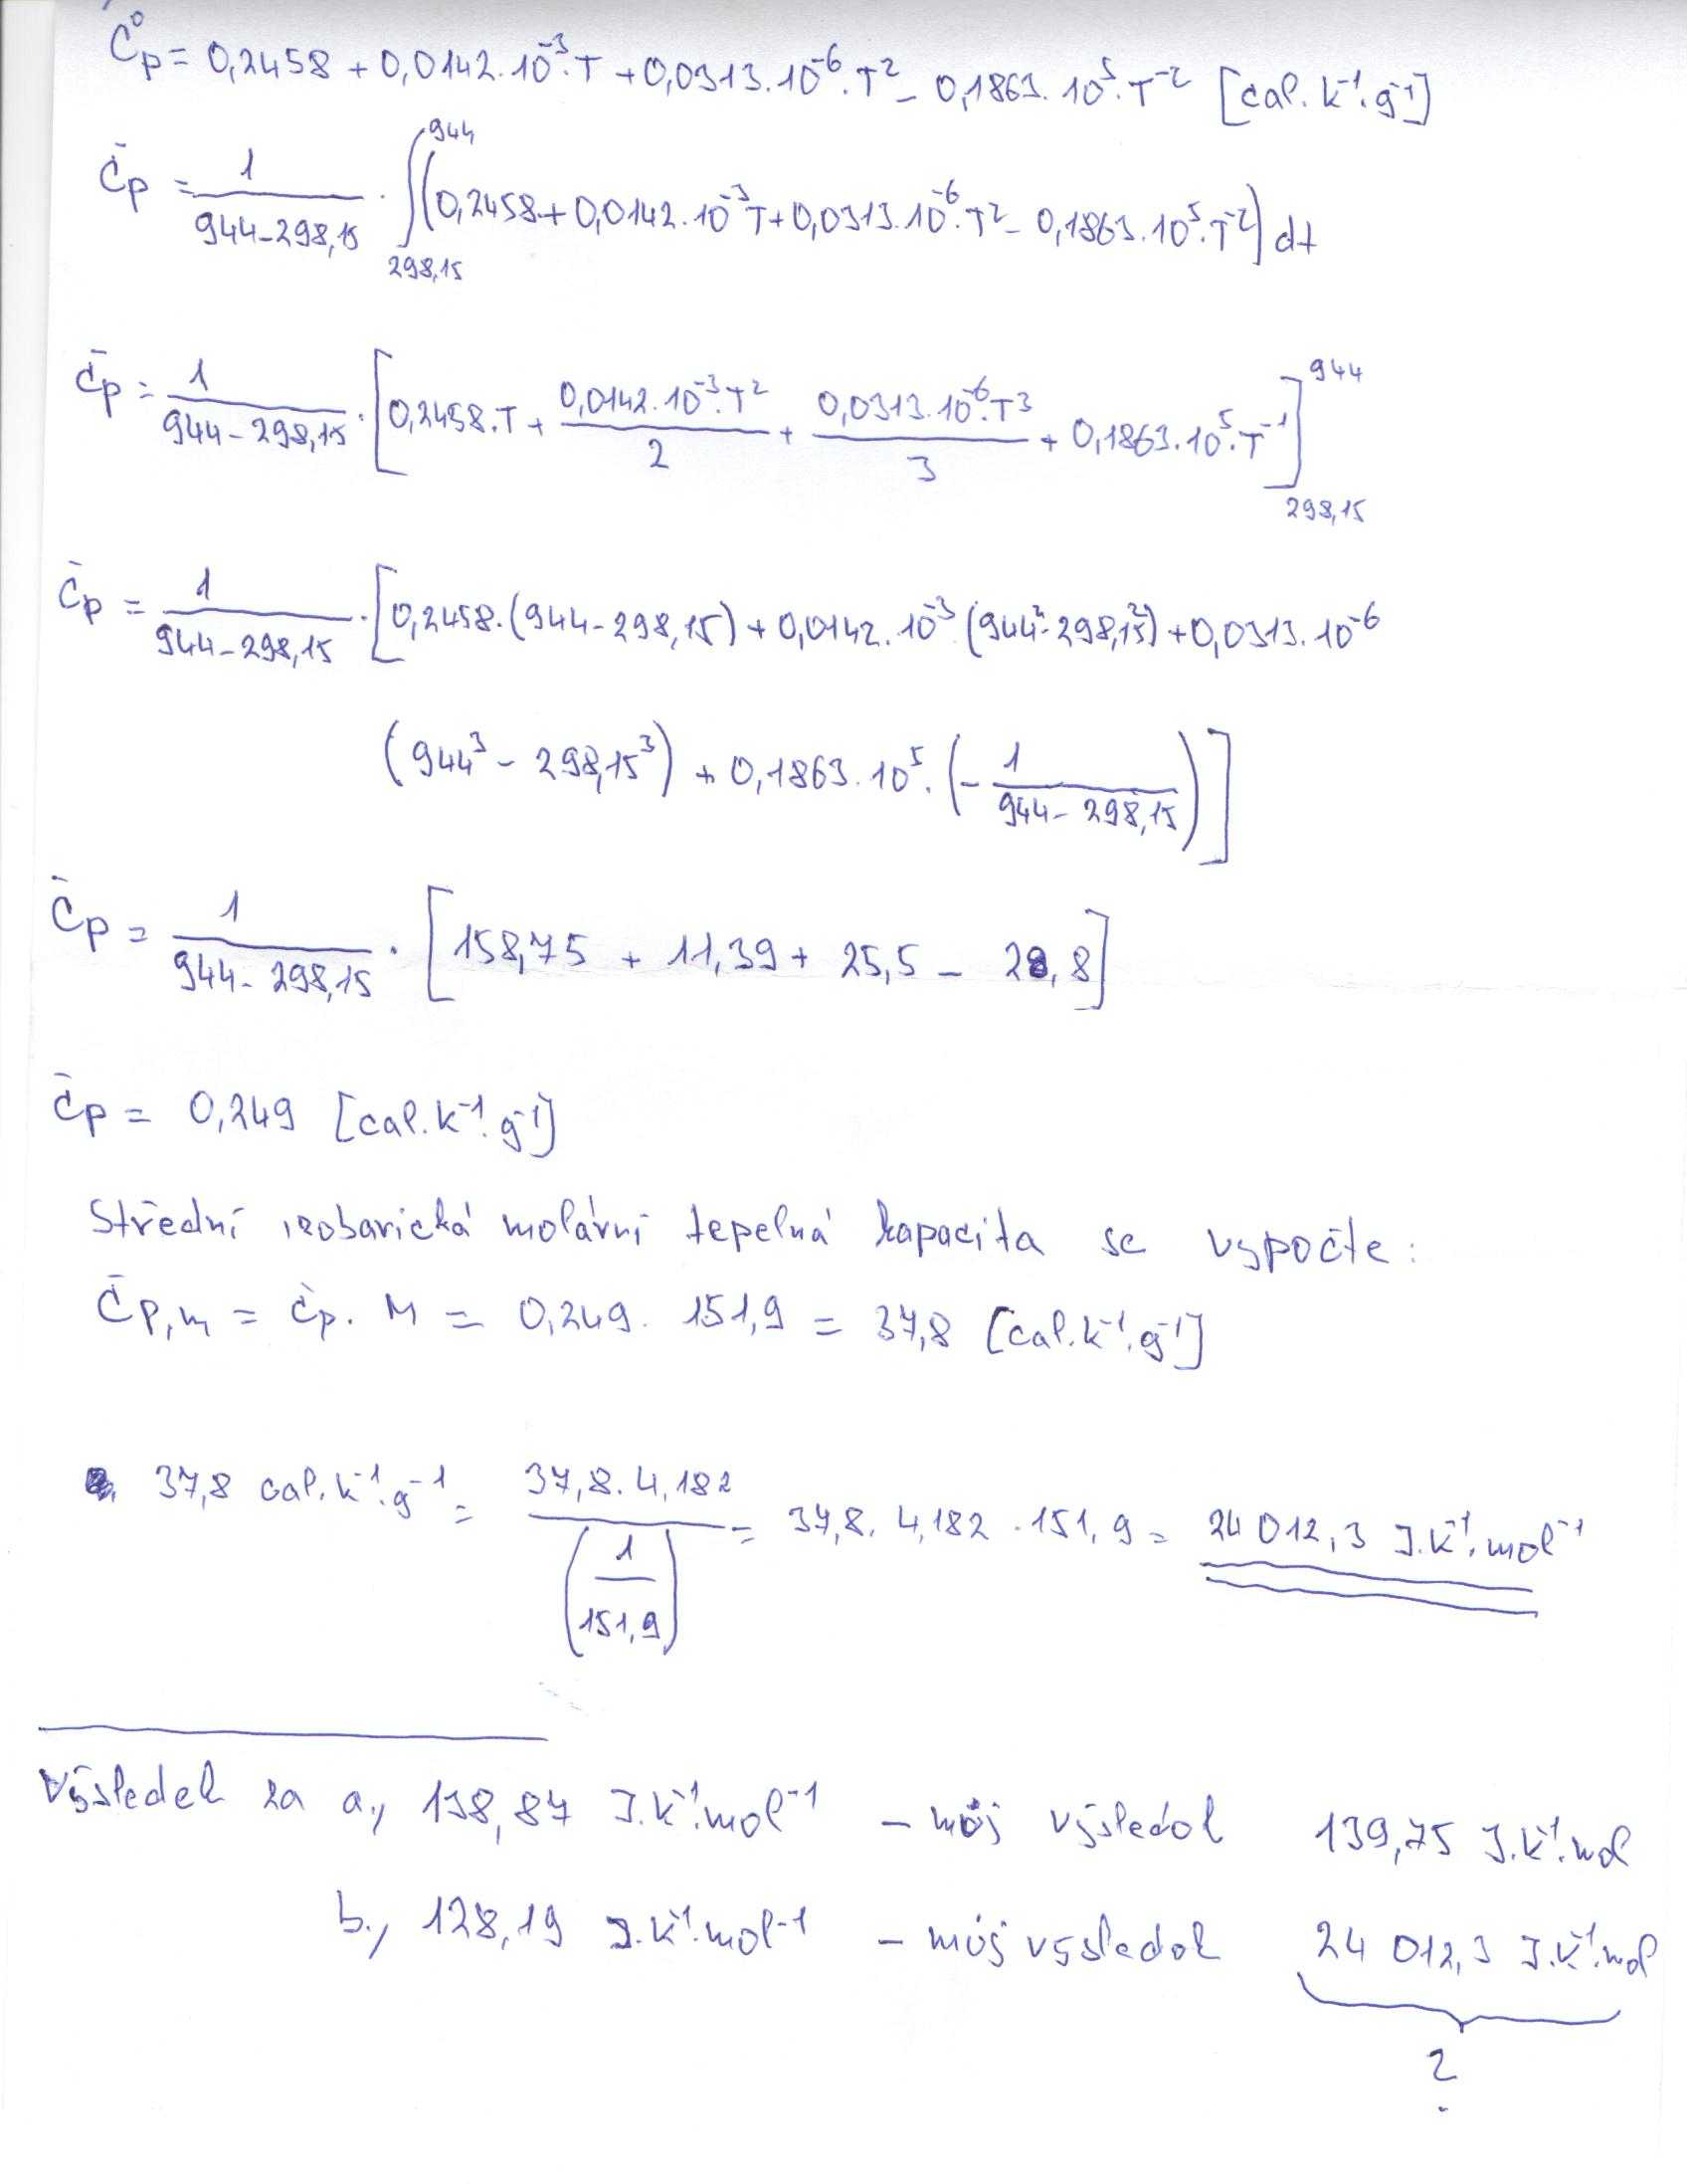 C°p = 0,2458 + 0,0142.10⁻³.T + 0,0313.10⁻⁶.T² - 0,1863.10⁵.T⁻² [cal.k⁻¹.g⁻¹]
C̄p = 1/(944-298,15) . ∫ 944 298,15 (0,2458 + 0,0142.10⁻³T + 0,0313.10⁻⁶.T² - 0,1863.10⁵.T⁻²) dt
c̄p = 1/(944-298,15) . [0,2458.T + 0,0142.10⁻³.T²/2 + 0,0313.10⁻⁶.T³/3 + 0,1863.10⁵.T⁻¹] 944 298,15
c̄p = 1/(944-298,15) . [0,2458.(944-298,15) + 0,0142.10⁻³(944²-298,15²) + 0,0313.10⁻⁶
(944³ - 298,15³) + 0,1863.10⁵.(-1/(944-298,15))]
c̄p = 1/(944-298,15) . [158,75 + 11,39 + 25,5 - 28,8]
c̄p = 0,249 [cal.k⁻¹.g⁻¹]
Střední izobarická molární tepelná kapacita se vypočte:
C̄p,m = c̄p.M = 0,249. 151,9 = 37,8 [cal.k⁻¹.g⁻¹]
37,8 cal.k⁻¹.g⁻¹ = 37,8.4,182/(1/151,9) = 37,8.4,182.151,9 = 24 012,3 J.K⁻¹.mol⁻¹
Výsledek za a, 138,87 J.K⁻¹.mol⁻¹ - môj výsledok 139,75 J.K⁻¹.mol
b., 128,19 J.K⁻¹.mol⁻¹ - môj výsledok 24 012,3 J.K⁻¹.mol
?